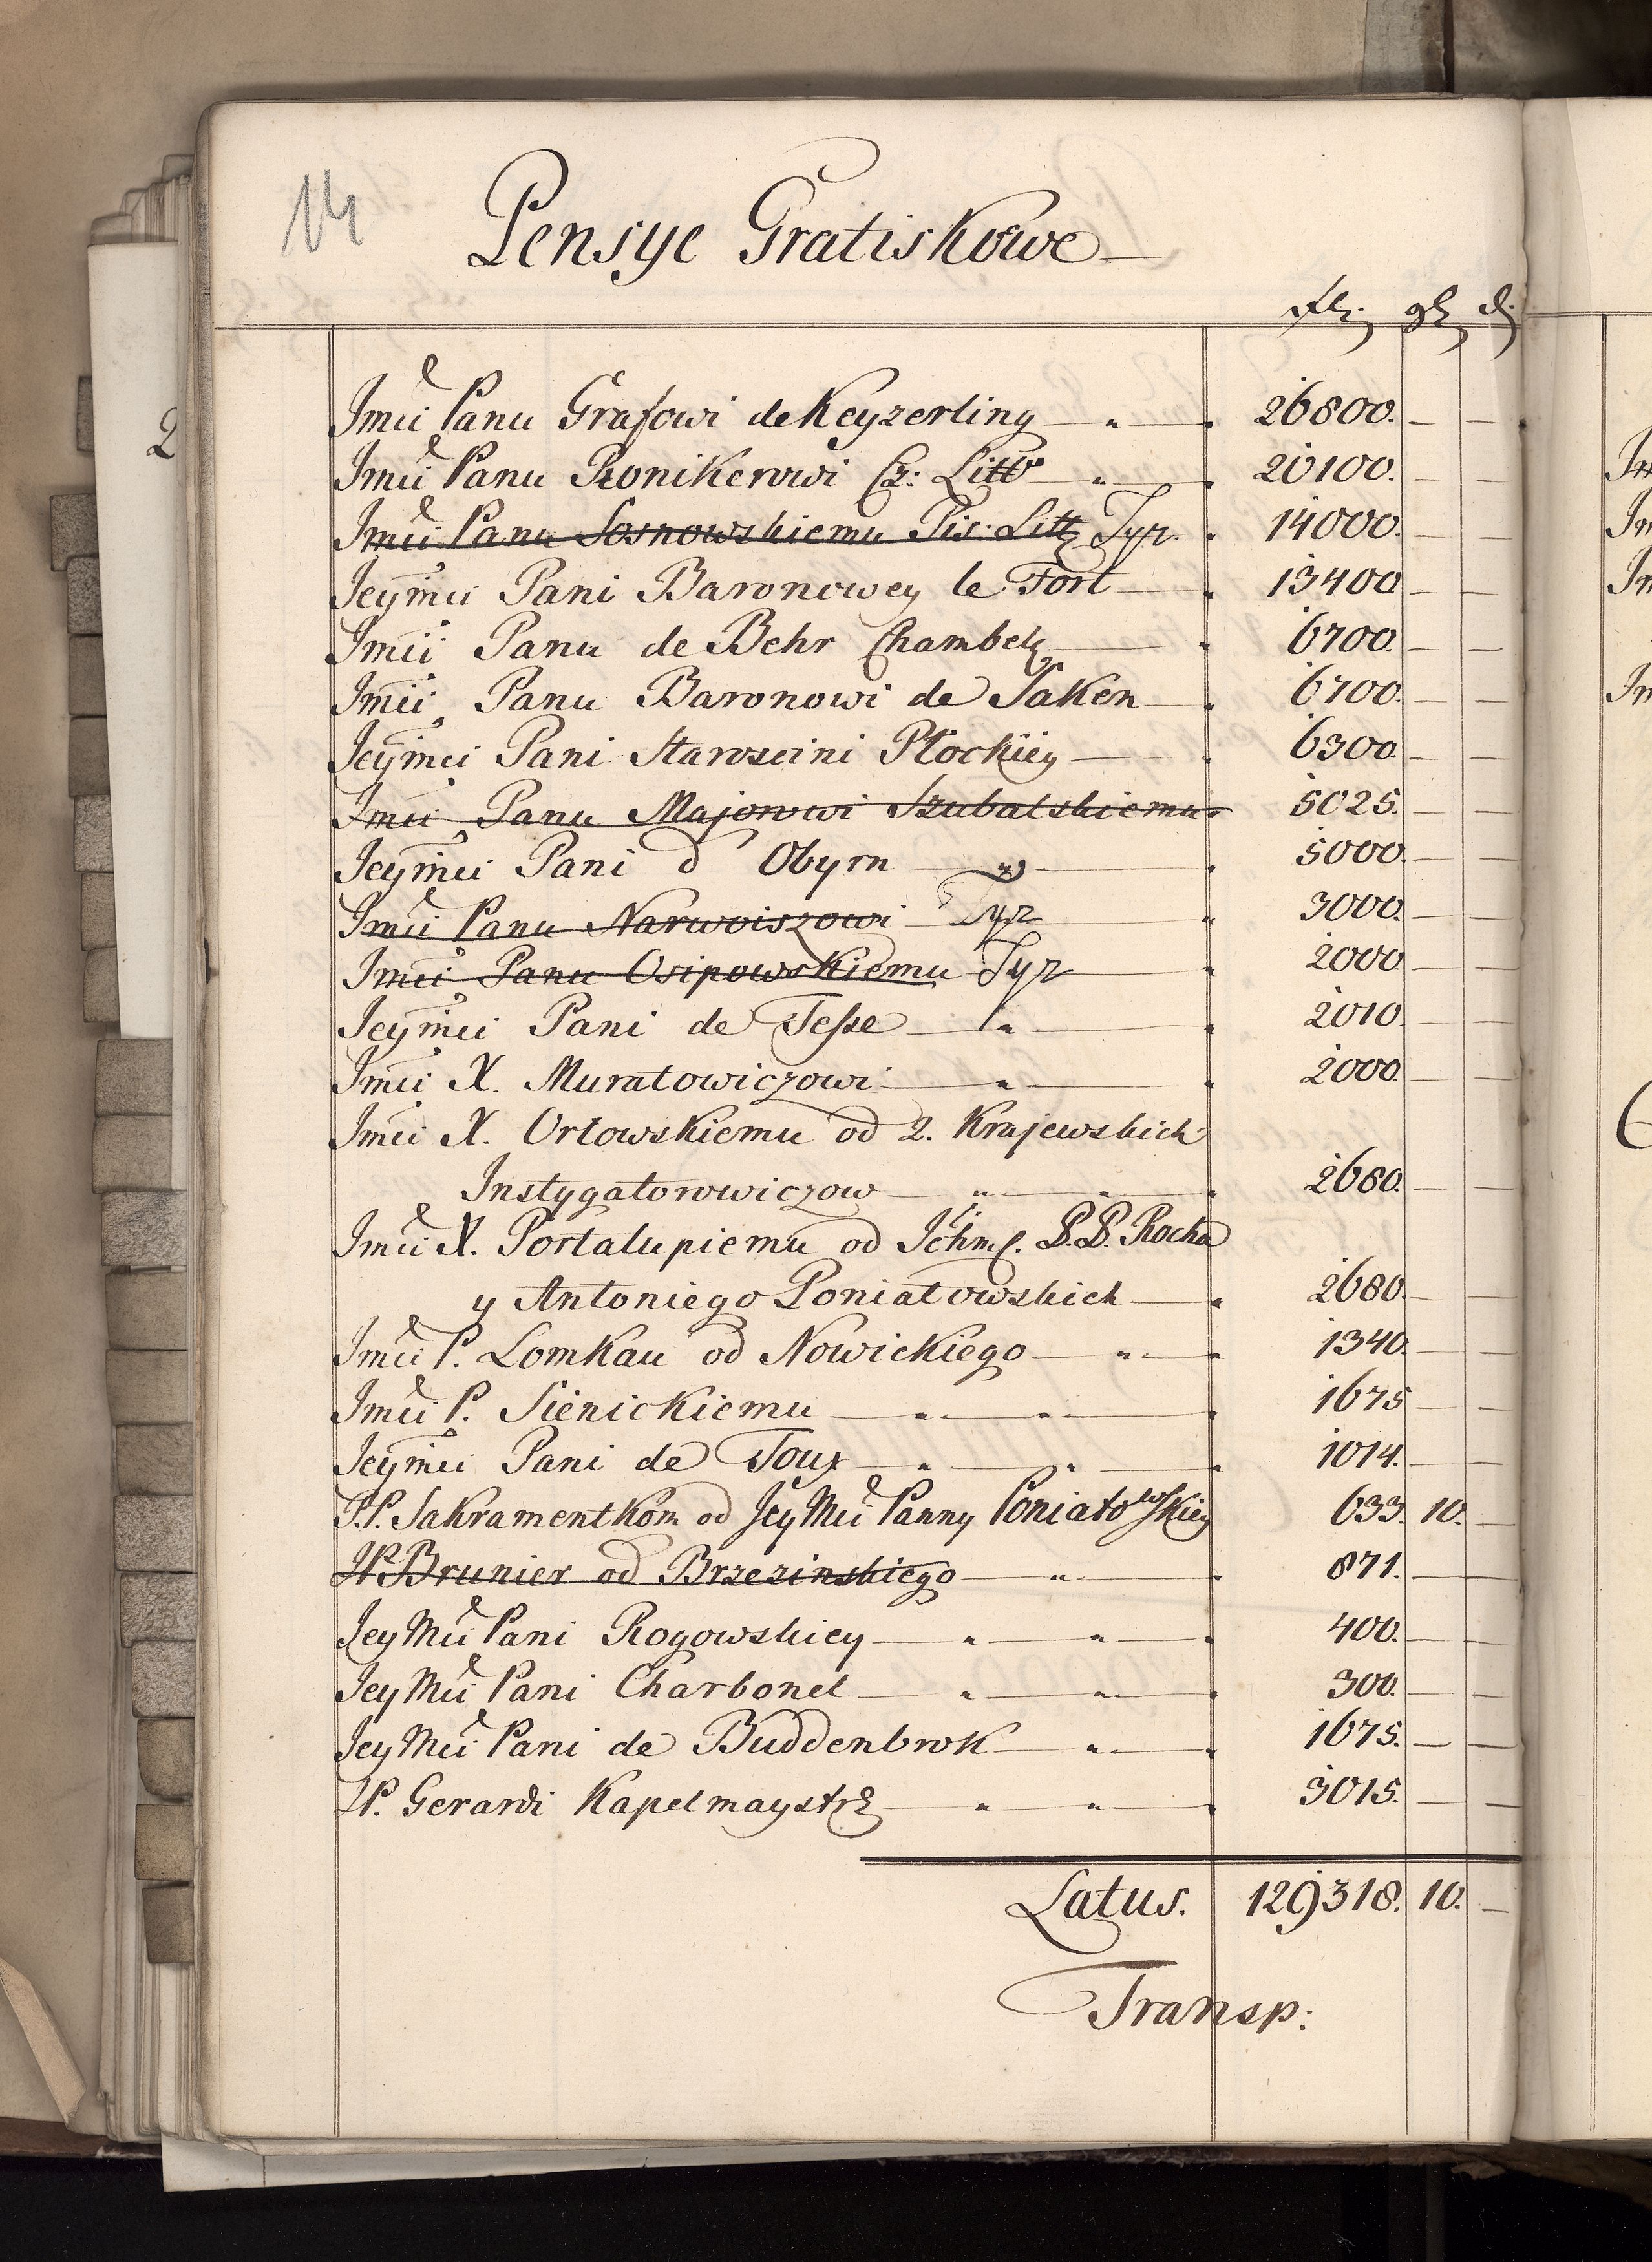 14
Pensye Gratiskowe
fl: gr d:
Jmci Panu Grafowi de Keyzerling 26800.
Jmci Panu Ronikerowi Cz: Litt 20100.
Jmci Panu Sosnowskiemu Pis: Litt Tyz. 14000.
Jeymci Pani Baronowey le Fort 13400
Jmci Panu de Behr Chambel 6700.
Jmci Panu Baronowi de Saken 6700.
Jeymci Pani Starościni Płockiey 6300.
Jmci Panu Majorowi Szubalskiemu 5025.
Jeymci Pani d Obyrn 5000.
Jmci Panu Narwoiszowi Tyz 3000.
Jmci Panu Osipowskiemu Tyz 2000
Jeymci Pani de Tesse 2010.
Jmci X. Muratowiczowi 2000
Jmci X. Orłowskiemu od 2. Krajewskich
Instygatorowiczow 2680.
Jmci X. Portalupiemu od Ichmc. P.P. Rocha
y Antoniego Poniatowskich 2680.
Jmci P. Lomkau od Nowickiego 1340.
Jmci P. Sienickiemu 1675
Jeymci Pani de Toux 1014.
P.P. Sakramentkom od Jey Mci Panny Poniatowskiey 633. 10.
JP. Brunier od Brzezinskiego 871.
Jey Mci Pani Rogowskiey 400.
Jey Mci Pani Charbonel 300.
Jey Mci Pani de Buddenbrok 1675.
JP. Gerardi Kapelmaystr 3015.
Latus. 129318. 10.
Transp: